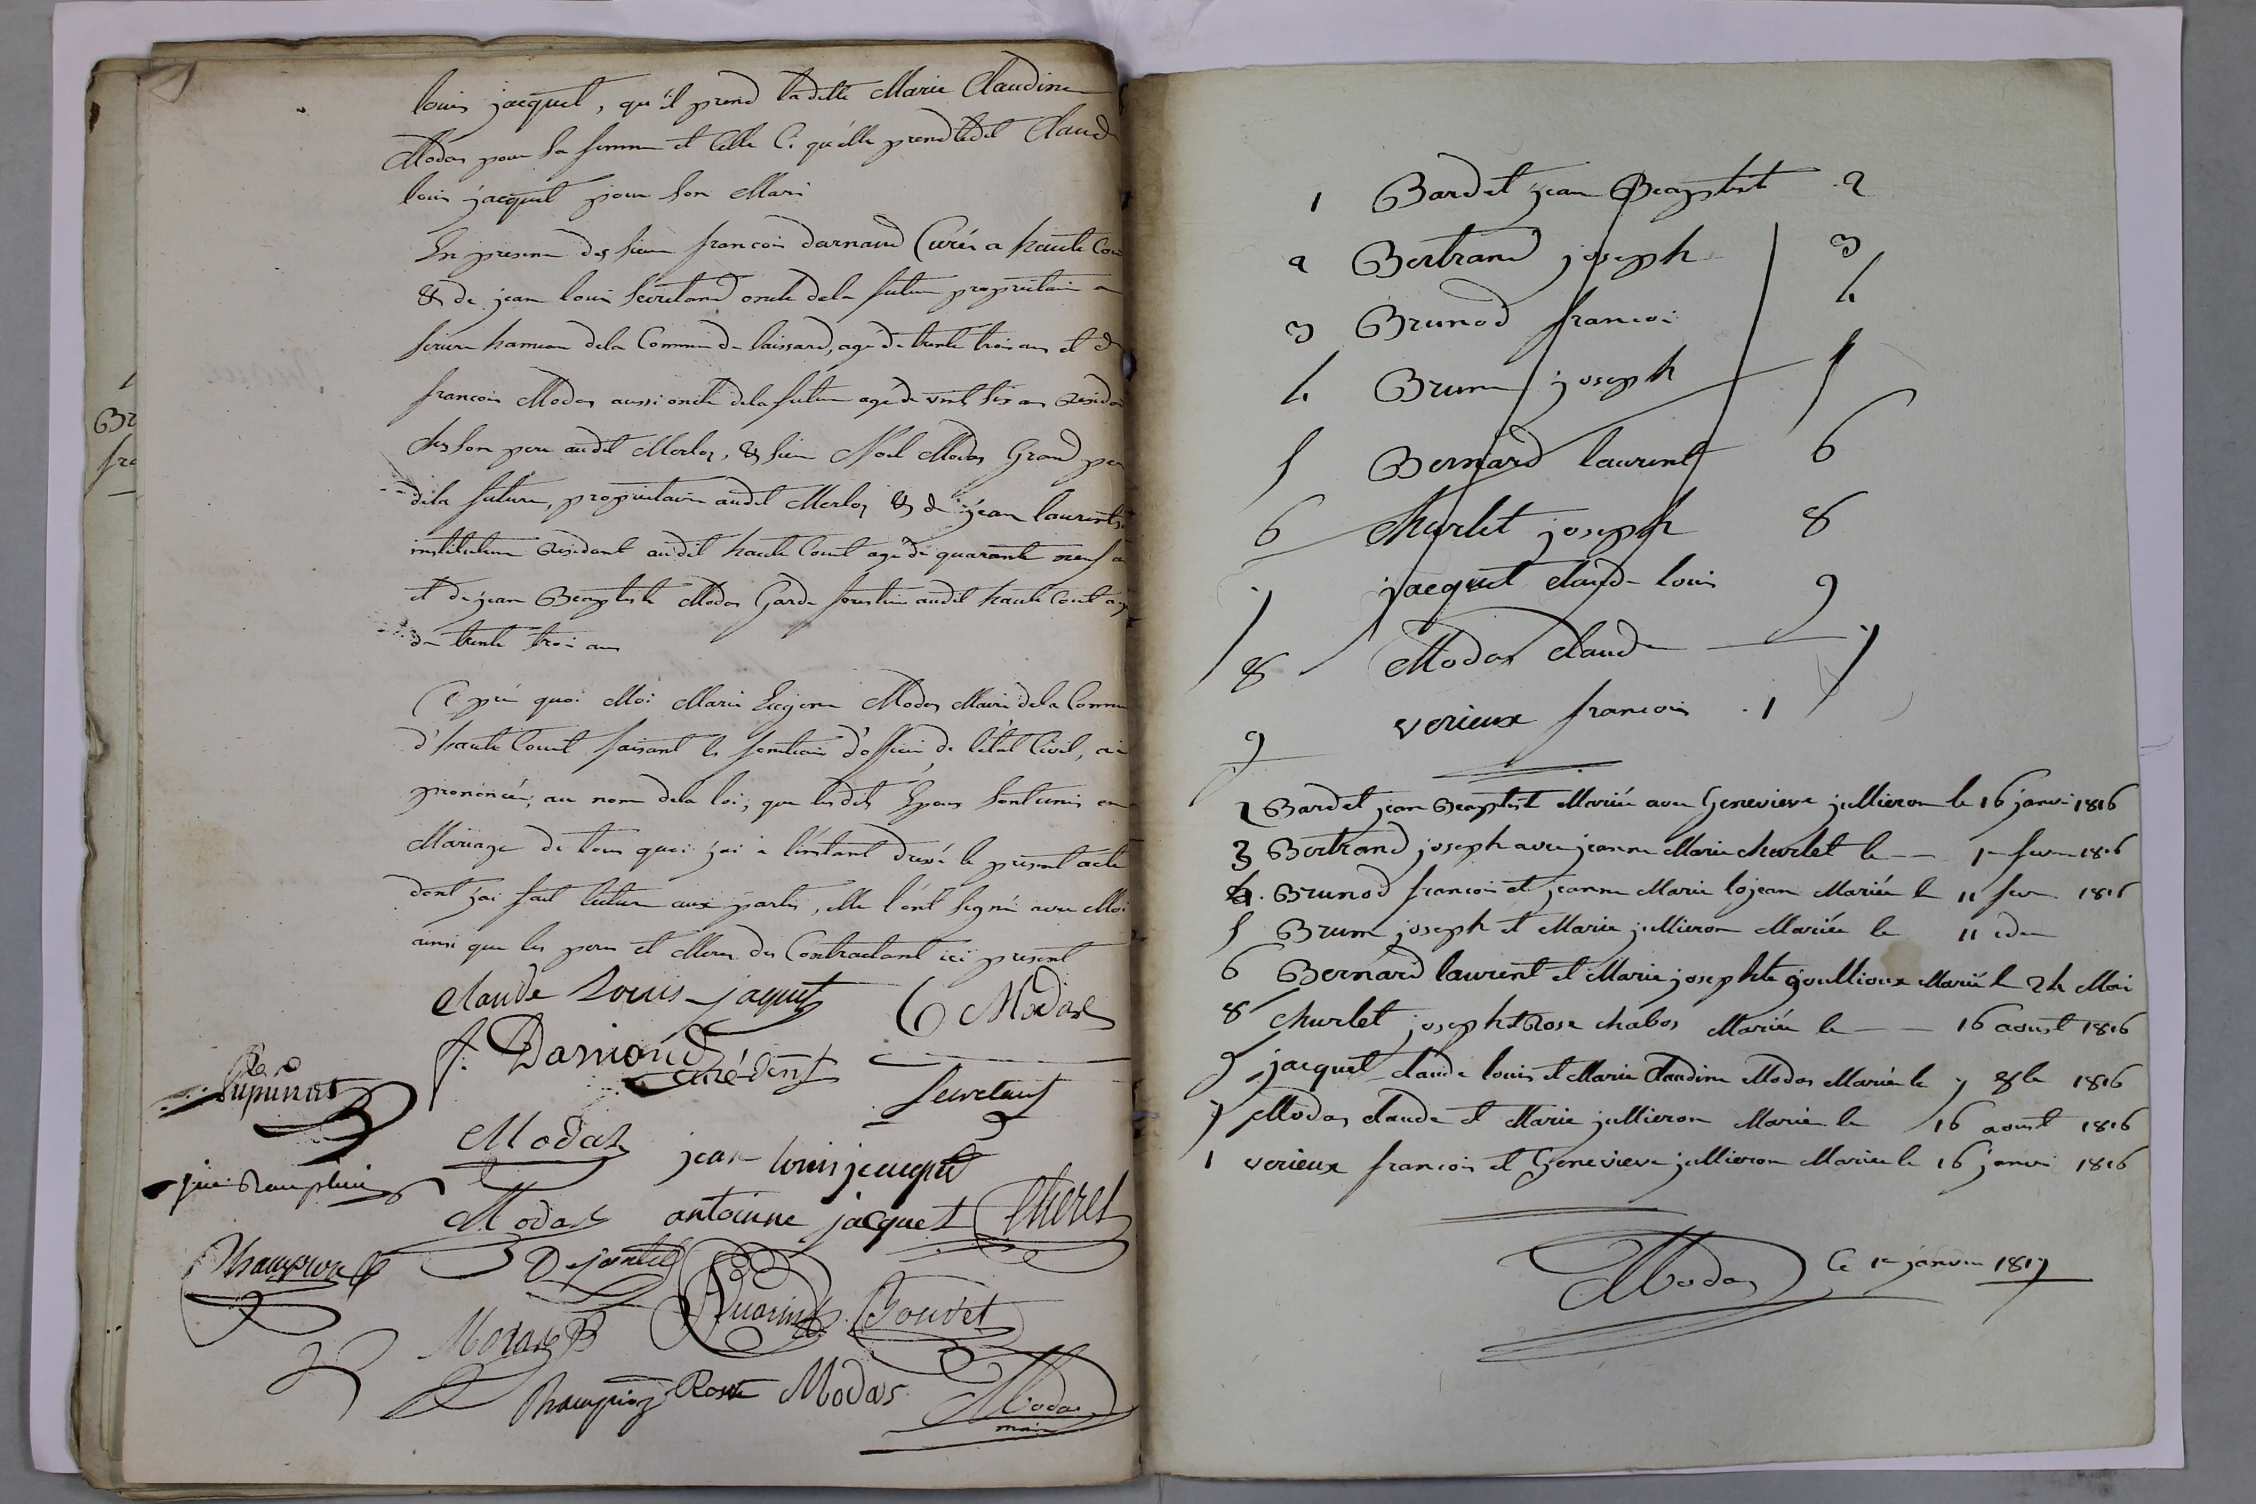 louis jacquet, qu'il prend laditte Marie Claudine
Modas pour sa femme et Celle Ci qu'elle prend ledit Claude
louis jacquet pour son Mari
En presence des sieur francois darnand Curés a haute Cou
& de jean louis Secretand oncle dela future propriétaire a
hameau dela Commune de laissard, agé de trente trois ans et d
francois Modas aussi oncle dela future agé de vint six ans Residan
chez son pere audit Merloz, & sieur Noel Modas Grand per
dela future, propriétaire audit Merloz & de jean laurent
instituteur Residant audit haute Court agé de quarante neuf a
et de jean Beaptiste Modas Garde forestier audit haute Court ag
de trente trois ans
Apres quoi Moi Marie Eugene Modas Maire dela Commu
d'haute Court faisant les fonctions d'officier de l'état Civil, ai
prononcée, au nom dela loi, que lesdits Epoux sont unis en
Mariage de tous quoi j'ai a l'instant dressé le present acte
dont j'ai fait lecture aux partis, elle l'ont signé avec Moi
ainsi que les peres et Meres des Contractant ici present
claude Louis jaquet C Modas
f. Damand curé-dent Secretant
Supuirat
Modas jean louis jacquet
Modas antoinne jacquet
Bouvet
Rose Modas Modas
maire
1 Bardet jean Beaptist 2
2 Bertrand joseph 3
3 Brunod francoi 4
4. Brum joseph 5
5 Bernard laurent 6
6 Churlet joseph 8
7 jacquet claude louis 9
8 Modas claude 7
9 verieux francois 1
2 Bardet jean Beaptist Mariée avec Genevieve jullieron le 16 janvi 1816
3 Bertrand joseph avec jeanne Marie churlet le 1er fevr 1816
4. Brunod francois et jeanne Marie lojean Mariée le 11 fev 1816
5 Brum joseph et Marie jullieron Mariée le 11 idem
6 Bernard laurent et Marie josephte goullioux Mariée le 24 Mai
8 Churlet joseph et Rose chabos Mariée le 16 aoust 1816
9 jacquet claude louis et Marie Claudine Modas Mariée le 7 8bre 1816
7 Modas claude et Marie jullieron Mariée le 16 aoust 1816
1 verieux francois et Genevieve jullieron Mariée le 16 janvi 1816
Modas Ce 1er janvier 1817